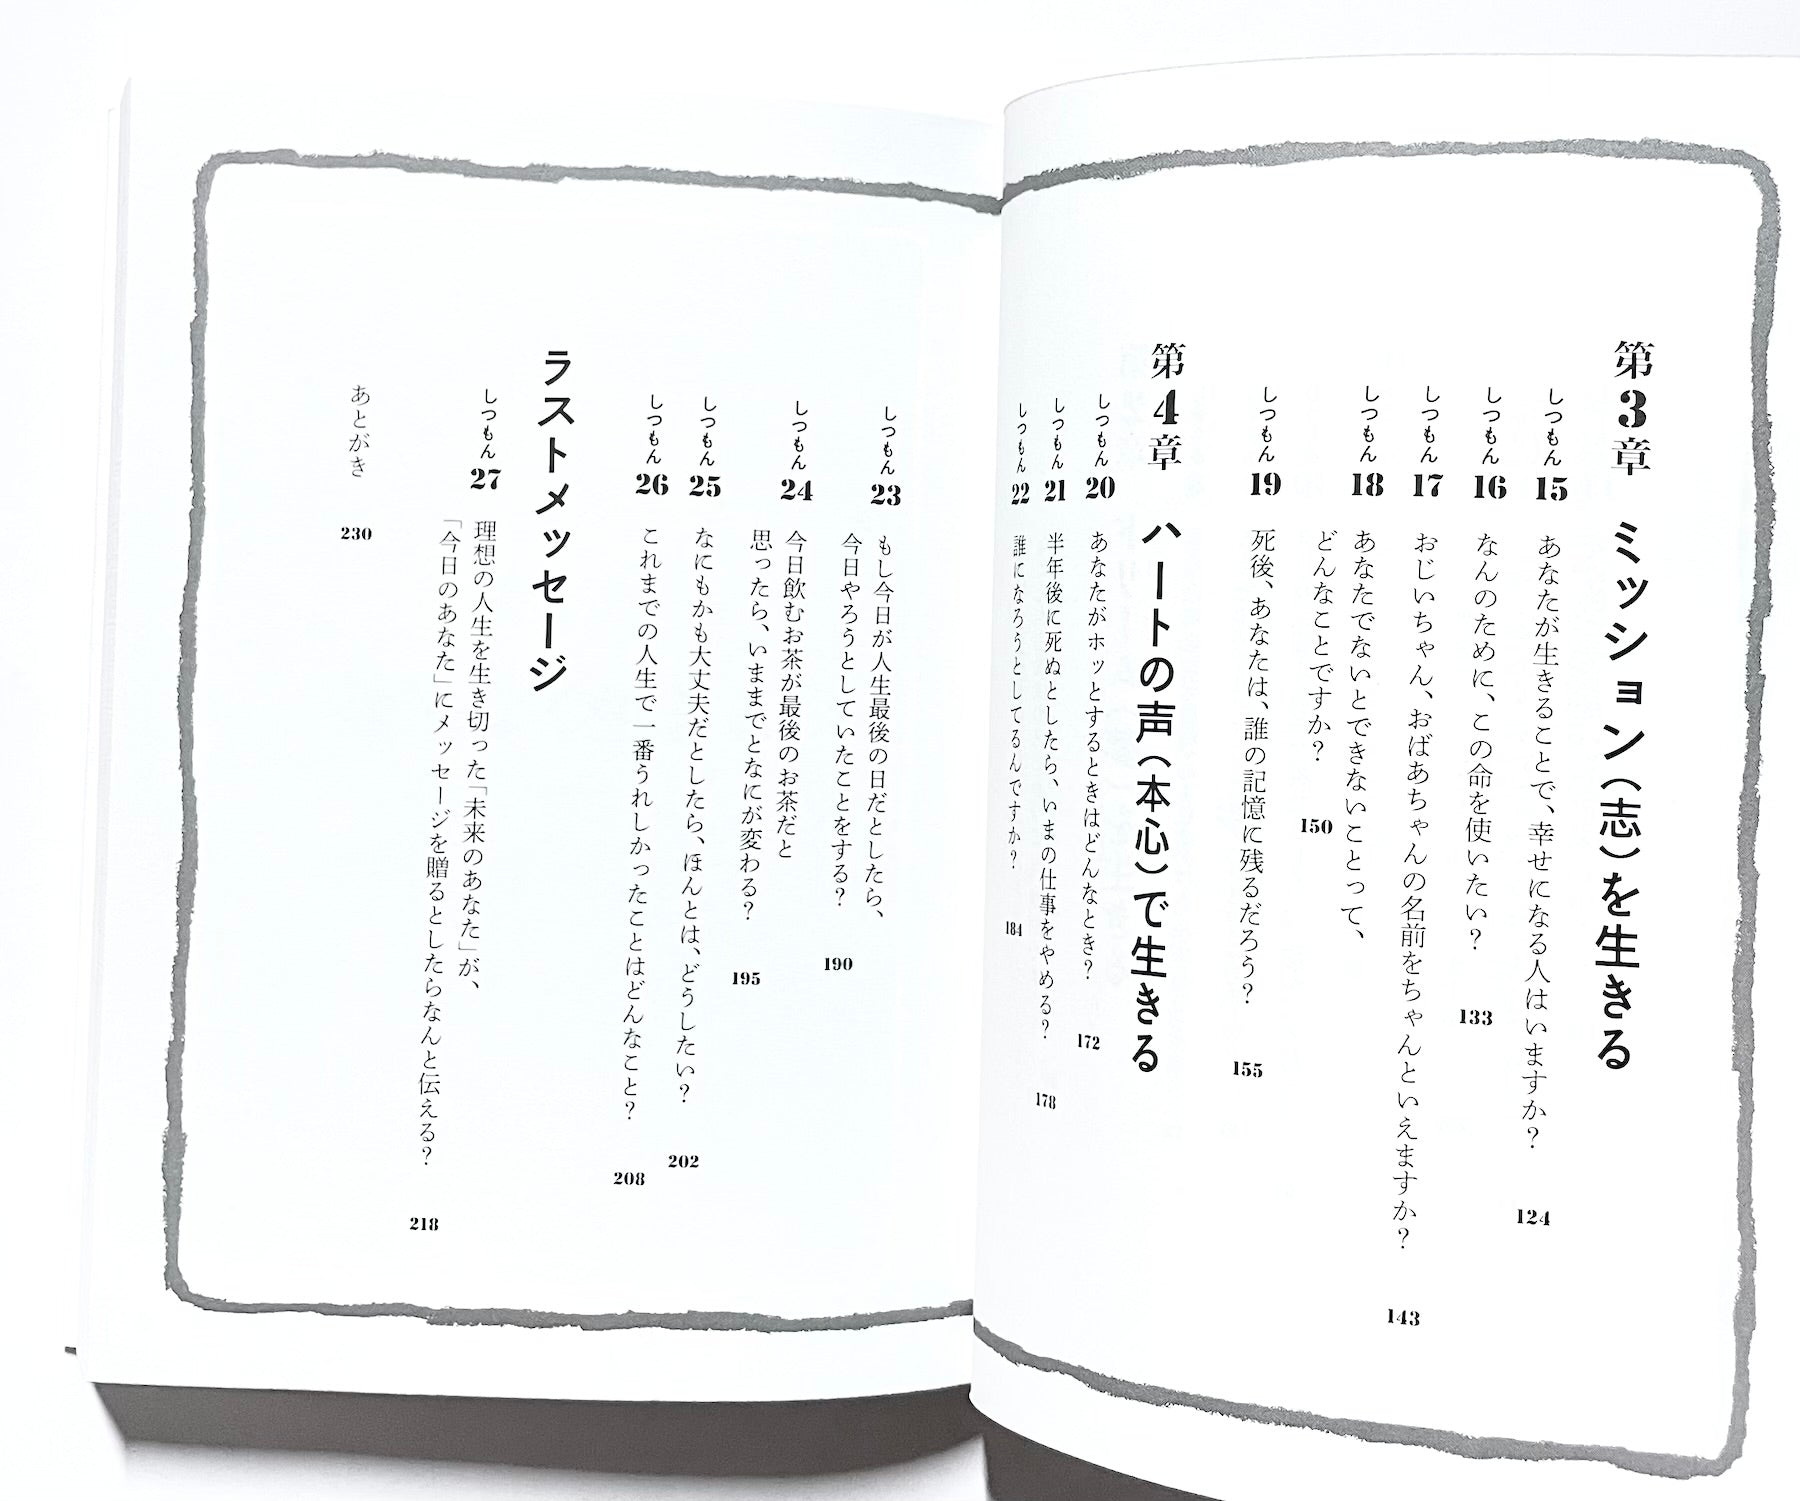 第3章 ミッション（志）を生きる
しつもん 15 あなたが生きることで、幸せになる人はいますか？ 124
しつもん 16 なんのために、この命を使いたい？ 133
しつもん 17 おじいちゃん、おばあちゃんの名前をちゃんといえますか？ 143
しつもん 18 あなたでないとできないことって、
どんなことですか？ 150
しつもん 19 死後、あなたは、誰の記憶に残るだろう？ 155
第4章 ハートの声（本心）で生きる
しつもん 20 あなたがホッとするときはどんなとき？ 172
しつもん 21 半年後に死ぬとしたら、いまの仕事をやめる？ 178
しつもん 22 誰になろうとしてるんですか？ 184
しつもん 23 もし今日が人生最後の日だとしたら、
今日やろうとしていたことをする？ 190
しつもん 24 今日飲むお茶が最後のお茶だと
思ったら、いままでとなにが変わる？ 195
しつもん 25 なにもかも大丈夫だとしたら、ほんとは、どうしたい？ 202
しつもん 26 これまでの人生で一番うれしかったことはどんなこと？ 208
ラストメッセージ
しつもん 27 理想の人生を生き切った「未来のあなた」が、
「今日のあなた」にメッセージを贈るとしたらなんと伝える？ 218
あとがき 230